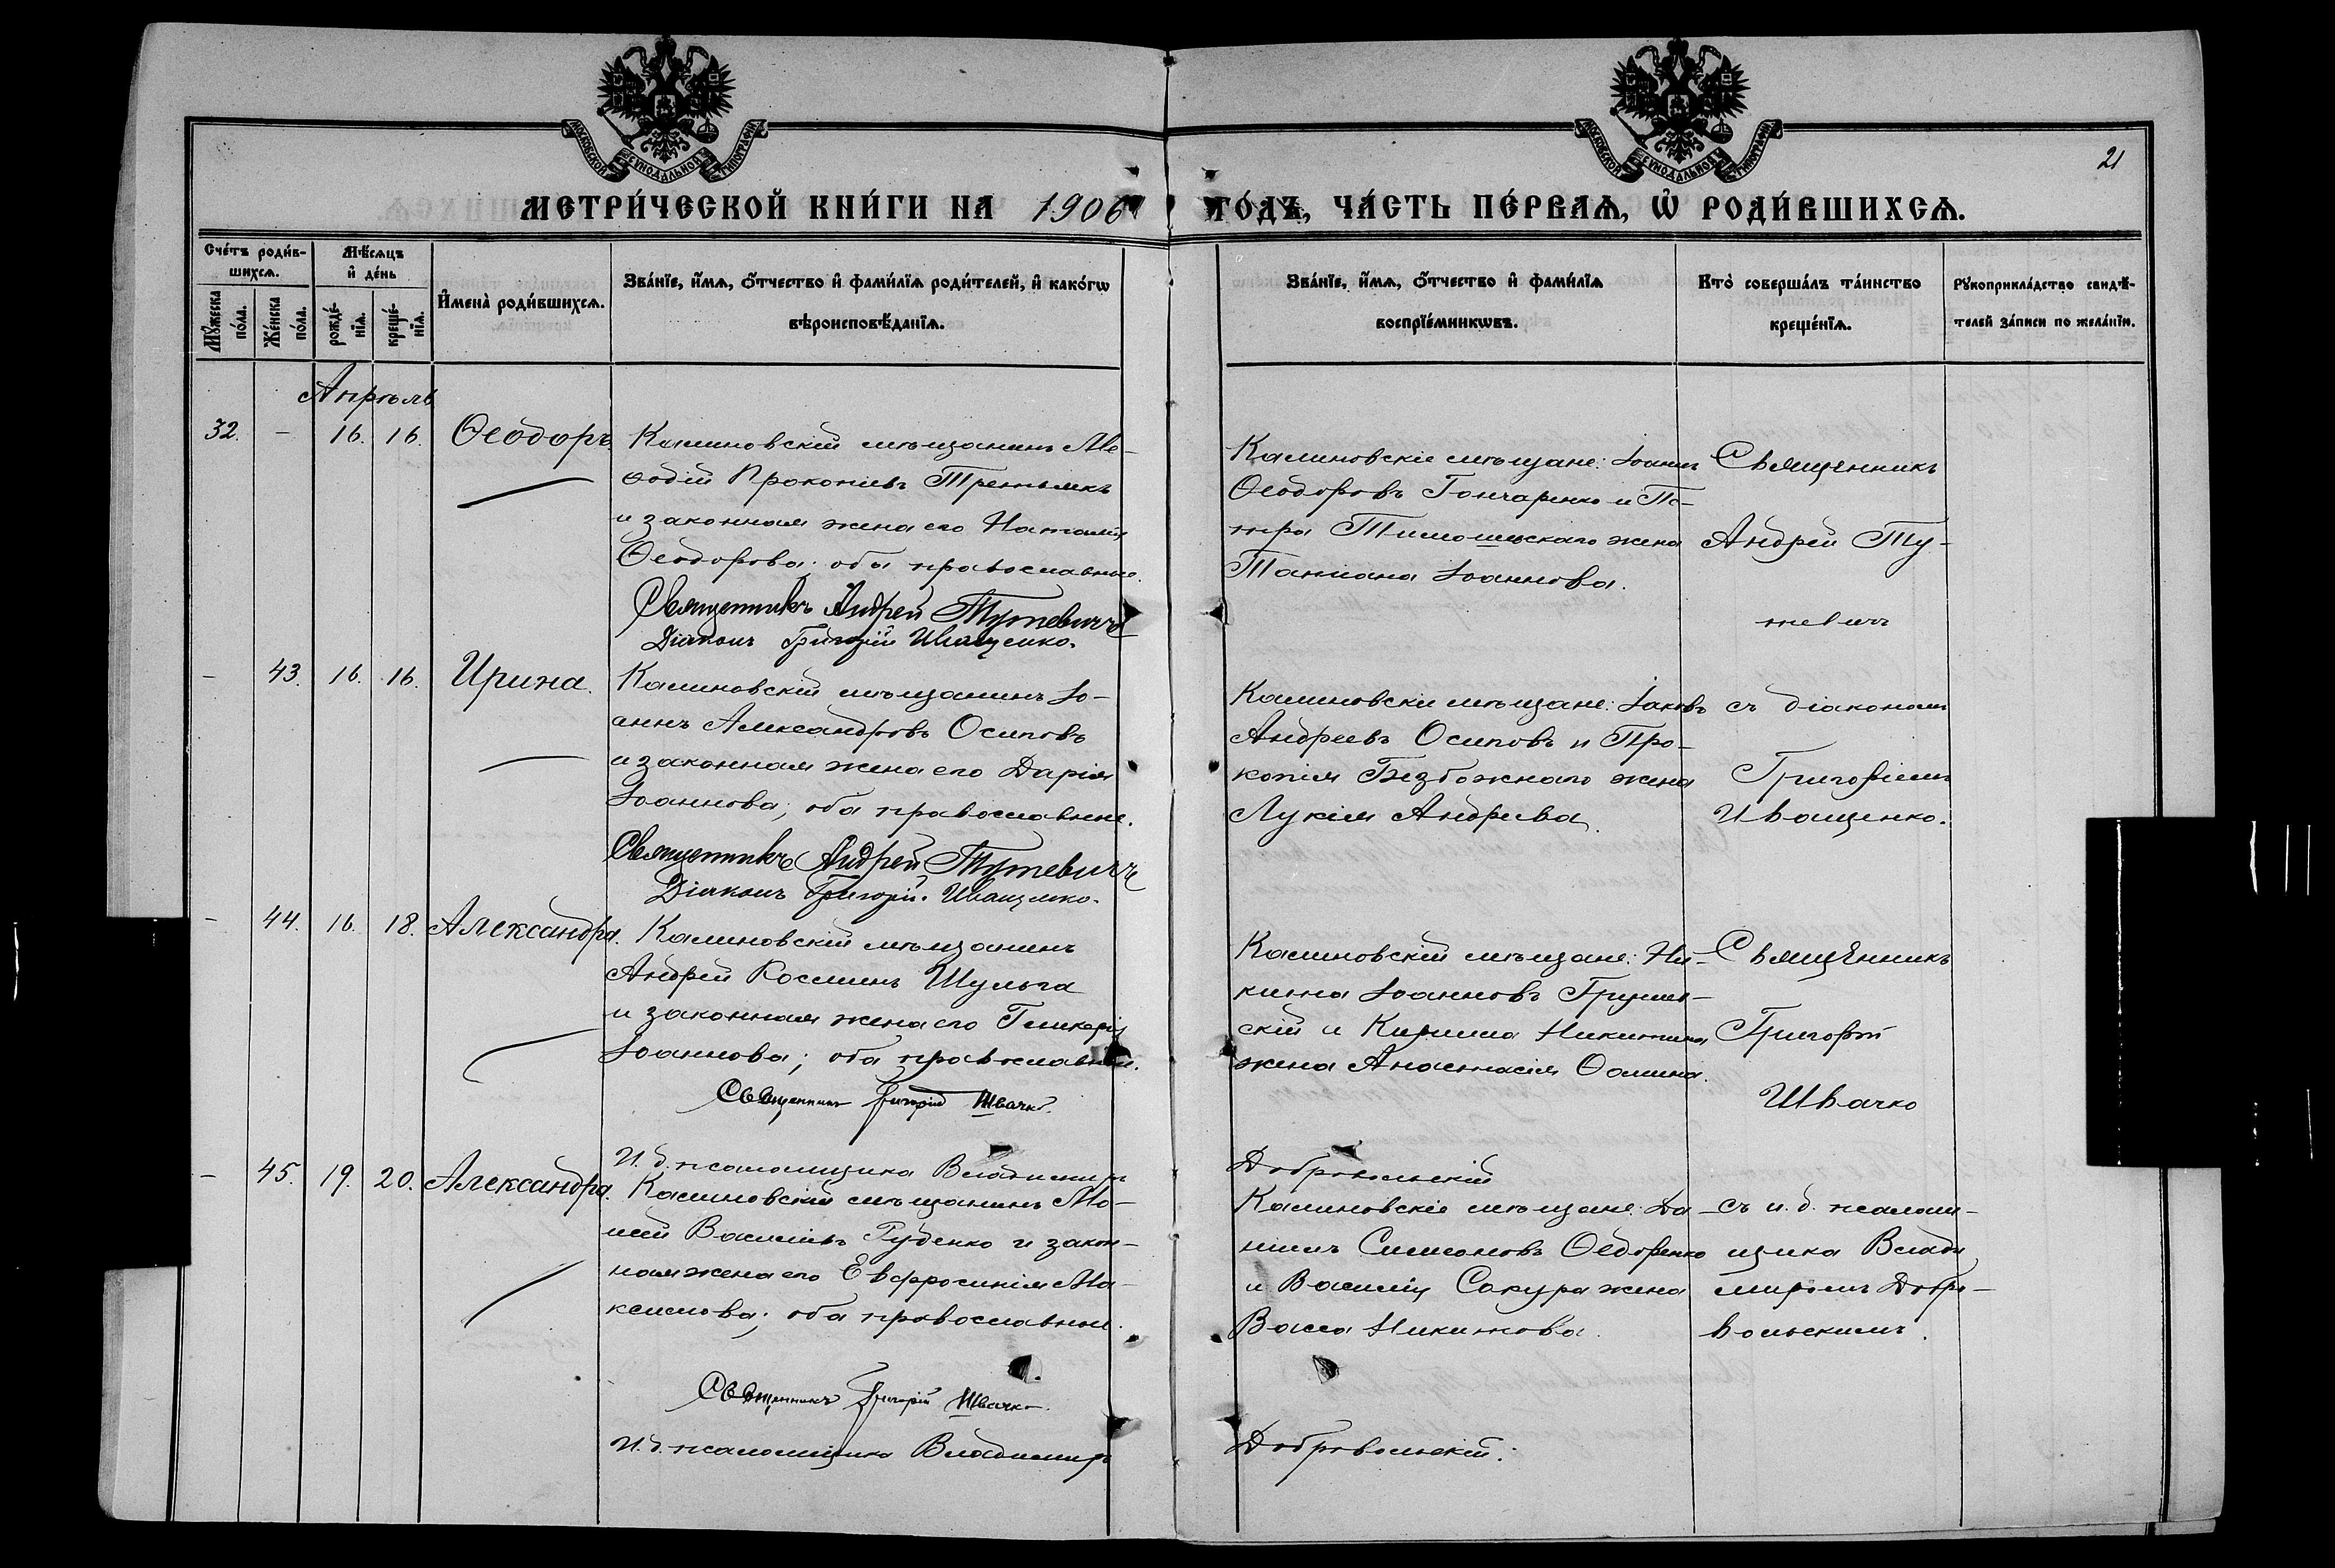 МОСКОВСКОЙ СѴНОДАЛЬНОЙ ТИПОГРАФІИ
МОСКОВСКОЙ СѴНОДАЛЬНОЙ ТИПОГРАФІИ
21
МЕТРИ́ЧЕСКОЙ КНИ́ГИ НА 1906 ГО́ДЪ, ЧА́СТЬ ПЕ́РВАѦ, Ѡ҆ РОДИ́ВШИХСѦ.
Сче́тъ роди́в-
шихсѧ.
Мꙋ́жеска
по́ла.
Же́нска
по́ла.
Мѣ́сѧцъ
и҆ де́нь
рожде́-
нїѧ.
креще́-
нїѧ.
И҆мена̀ роди́вшихсѧ.
Зва́нїе, и҆́мѧ, ѻ҆́тчество и҆ фами́лїѧ роди́телей, и҆ како́гѡ
вѣроисповѣ́данїѧ.
Зва́нїе, и҆́мѧ, ѻ҆́тчество и҆ фами́лїѧ
воспрїе́мникѡвъ.
Кто̀ соверша́лъ та́инство
креще́нїѧ.
Рꙋкоприкла́дство свидѣ́-
телей за́писи по жела́нїю.
Апрѣль
32. - 16. 16. Ѳеодоръ.
Калиновскій мѣщанинъ Ме-
ѳодій Прокопіевъ
и законная жена его Наталія
Ѳеодорова; оба православные.
Священникъ Андрей Тутевичъ
Діаконъ Григорій Иващенко.
Калиновскіе мѣщане: Іоаннъ
Ѳеодоровъ Гончаренко и Пе-
тра Тимошевскаго жена
Татіана Іоаннова.
Священникъ
Андрей Ту-
тевичъ
- 43. 16. 16. Ирина.
Калиновскій мѣщанинъ Іо-
аннъ Александровъ Осиповъ
и законная жена его Дарія
Іоаннова; оба православные.
Священникъ Андрей Тутевичъ
Діаконъ Григорій Иващенко.
Калиновскіе мѣщане: Іаковъ
Андреевъ Осиповъ и Про-
копія Безбожнаго жена
Лукія Андреева.
съ діакономъ
Григоріемъ
Иващенко.
- 44. 16. 18. Александра.
Калиновскій мѣщанинъ
Андрей Косминъ Шульга
и законная жена его Гликерія
Іоаннова; оба православные.
Священникъ Григорій Швачко.
И. д. псаломщика Владимиръ Добровольскій
Калиновскій мѣщане: Ни-
кита Іоанновъ
скій и Никитина
жена Анастасія Ѳомина.
Священникъ
Григорій
Швачко
- 45. 19. 20. Александра.
Калиновскій мѣщанинъ Мо-
исей Василіевъ Руденко и закон-
ная жена его Евфросинія Ма-
ксимова; оба православные.
Священникъ Григорій Швачко.
И. д. псаломщика Владимиръ Добровольскій.
Калиновскіе мѣщане: Да-
ніилъ Симеоновъ Ѳедоренко
и Василія Сакура жена
Васса Никитова.
съ и. д. псалом-
щика Влади
миромъ Добро-
вольскимъ.